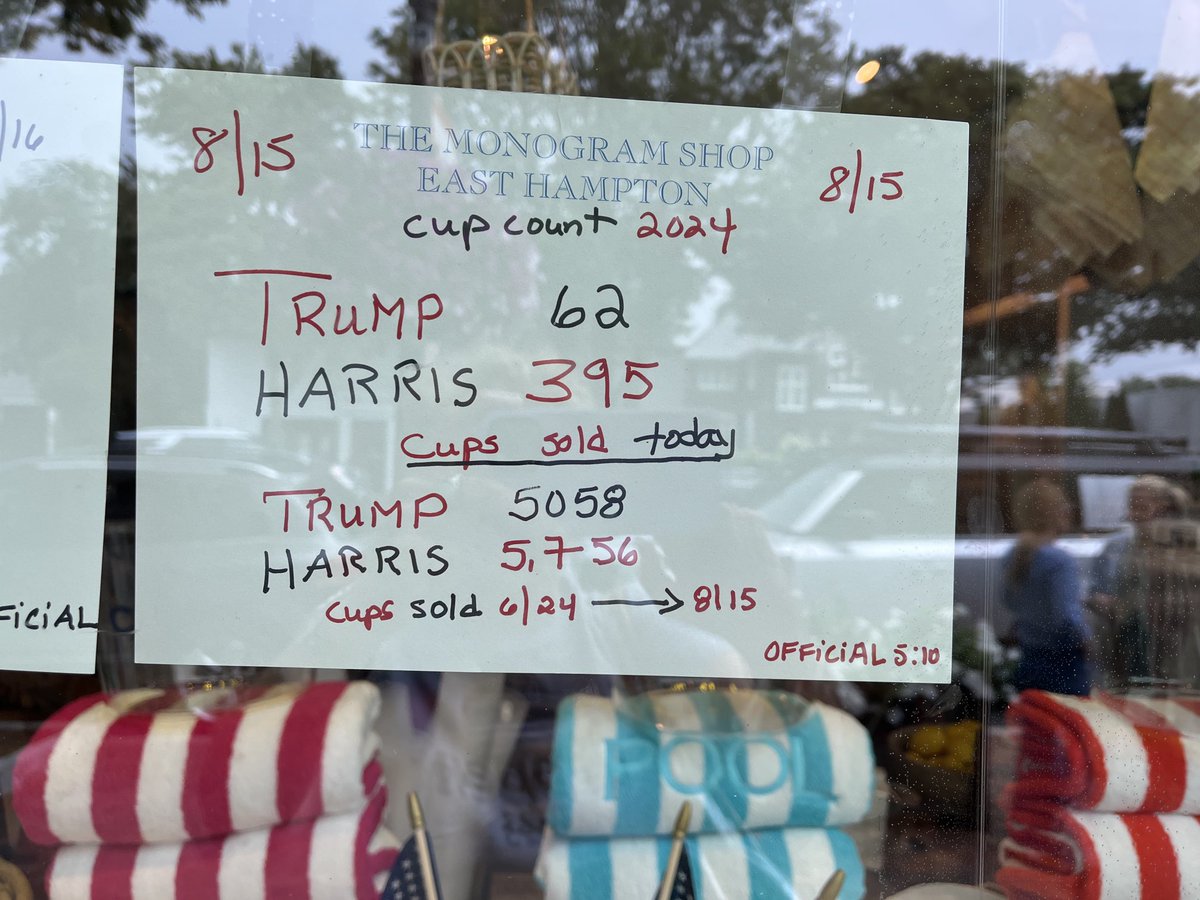 /16
FICIAL
8/15
THE MONOGRAM SHOP
8/15
EAST HAMPTON
cup count 2024
TRUMP 62
HARRIS 395
Cups sold today
TRUMP 5058
HARRIS 5,756
Cups sold 6/24 → 8/15
OFFICIAL 5:10
POOL